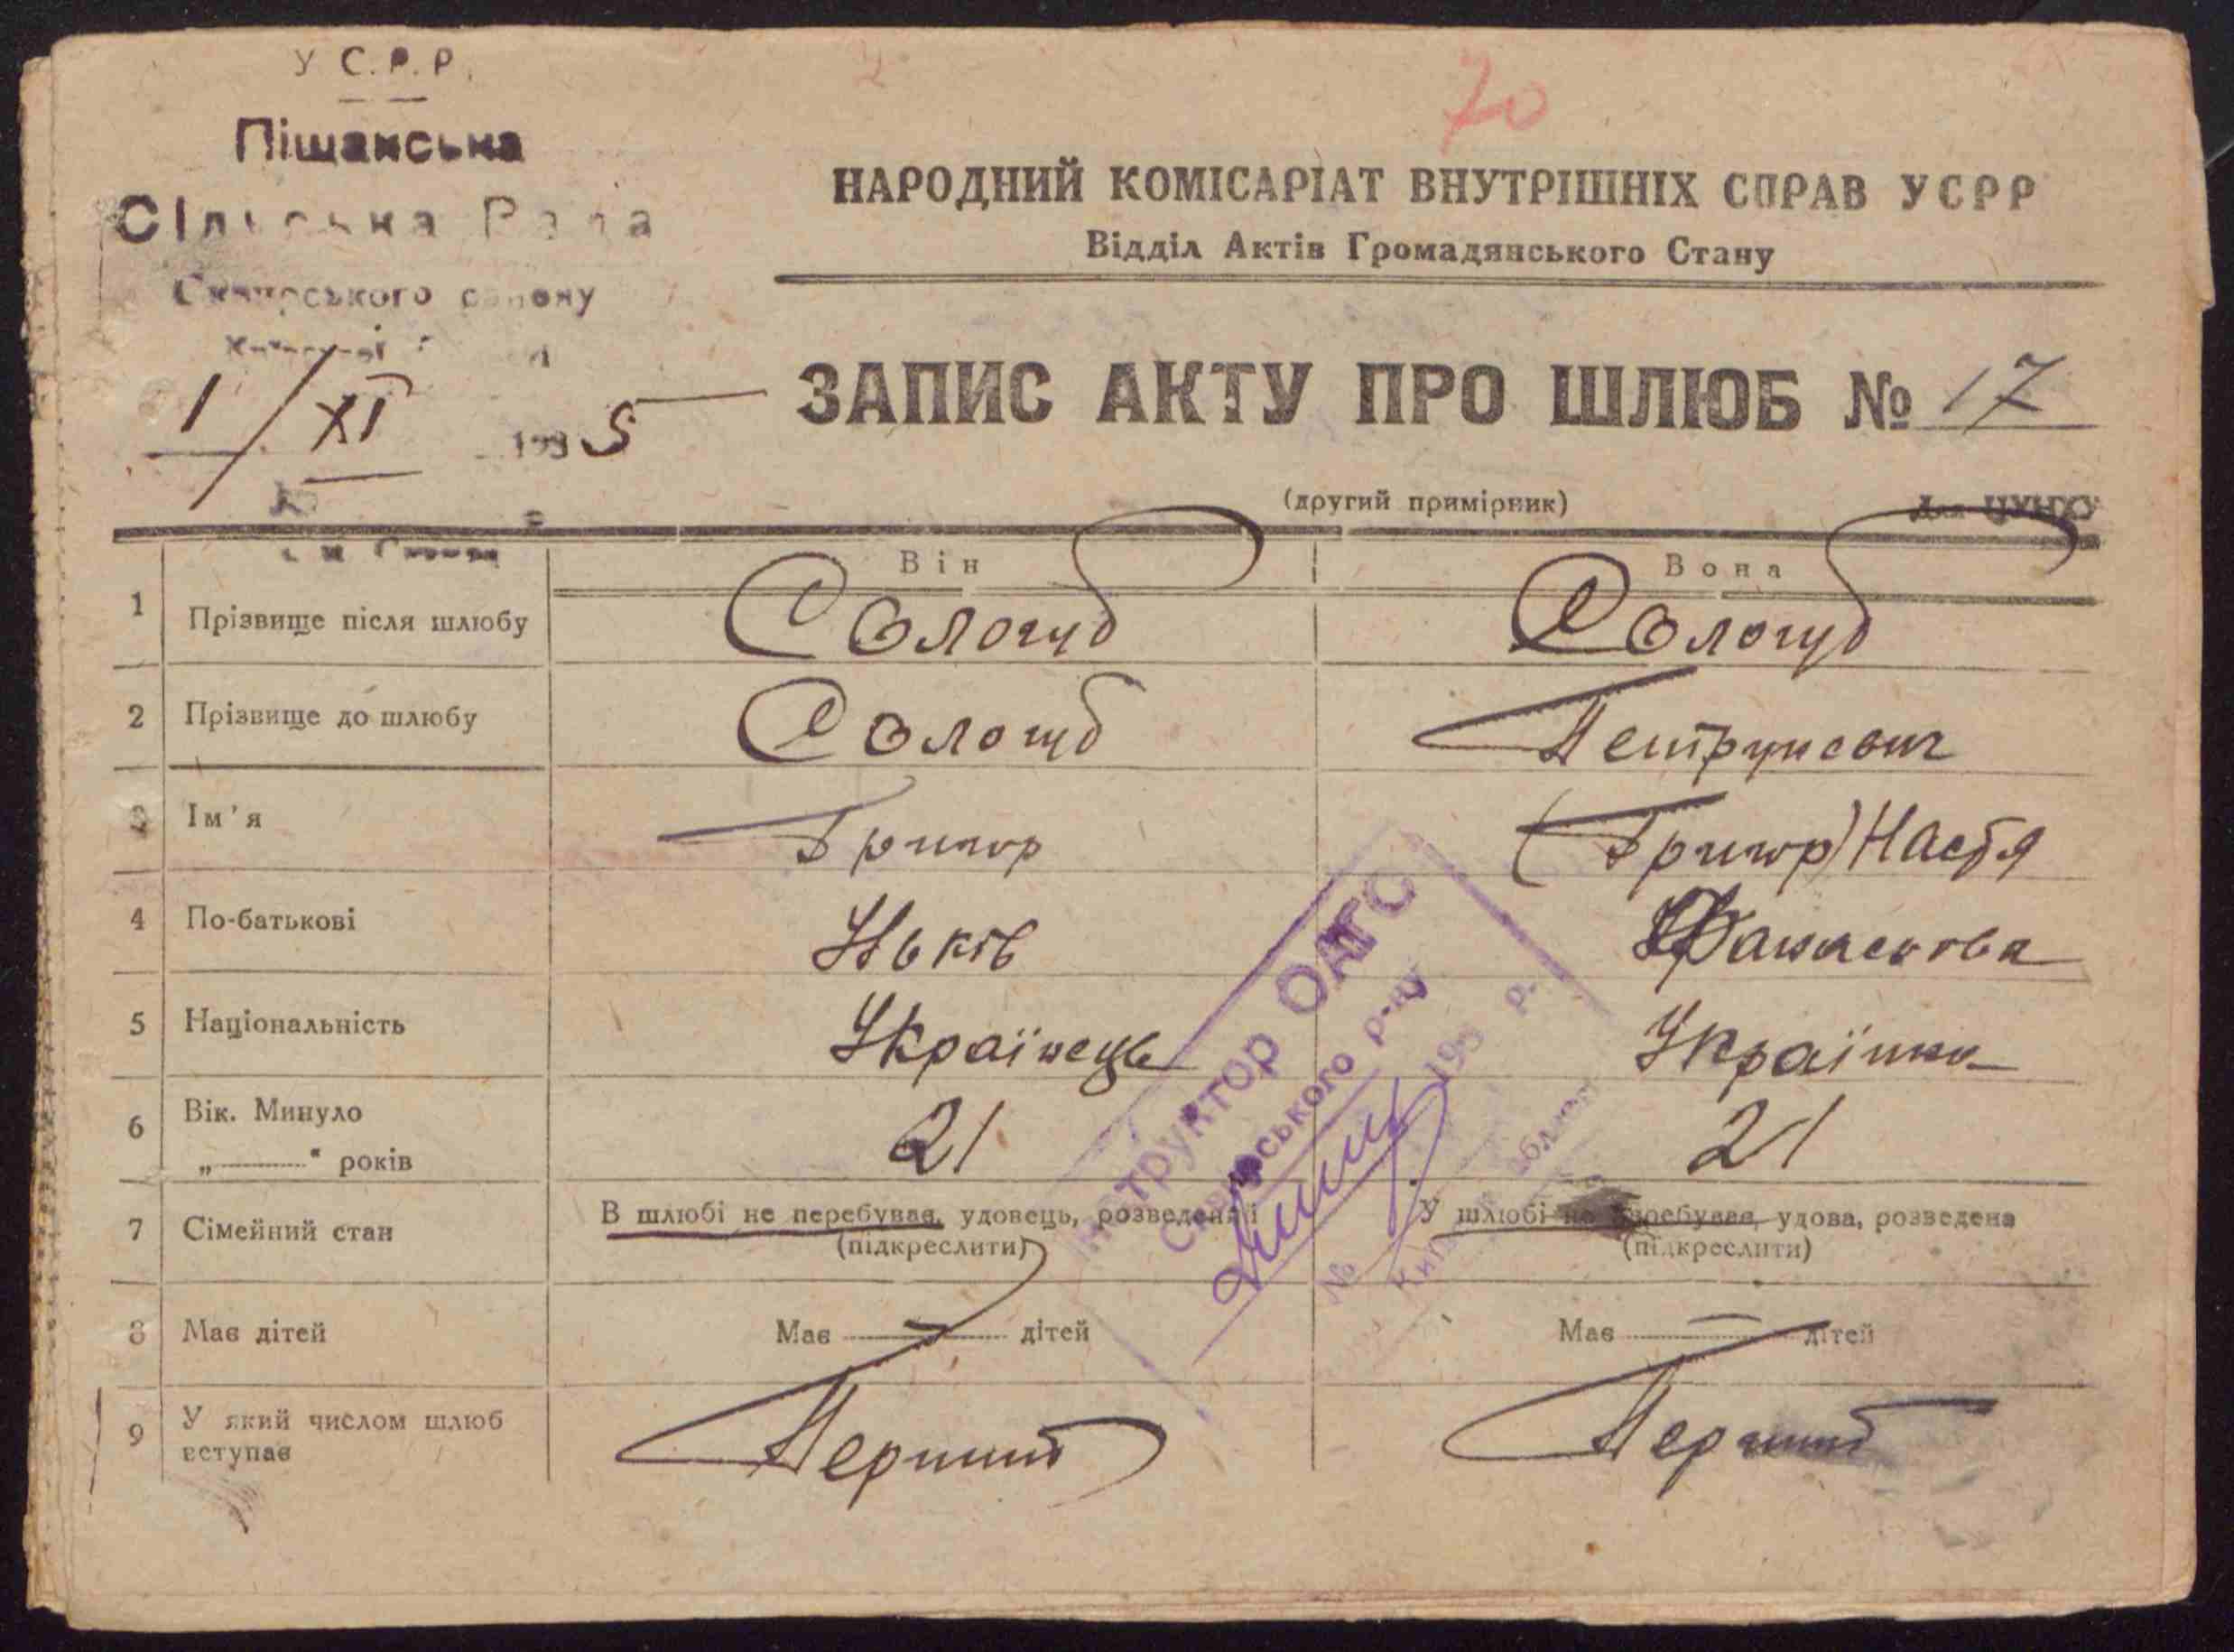 У С.Р.Р.
Піщанська
Сільська Рада
Сквирського району
1/XI 1935
70
НАРОДНИЙ КОМІСАРІАТ ВНУТРІШНІХ СПРАВ УСРР
Відділ Актів Громадянського Стану
ЗАПИС АКТУ ПРО ШЛЮБ № 17
(другий примірник)
Для ЦУНХО
Він
Вона
1 Прізвище після шлюбу Сологуб Сологуб
2 Прізвище до шлюбу Сологуб
3 Ім'я Григор (Григор) Настя
4 По-батькові
5 Національність Українець Українка
6 Вік. Минуло 21 21
„ “ років
7 Сімейний стан В шлюбі не перебував, удовець, розведений У шлюбі не перебуває, удова, розведена
(підкреслити) (підкреслити)
8 Має дітей Має — дітей Має — дітей
9 У який числом шлюб вступає Перший Перший
Інструктор ОАГС
Сквирського р-ну
№ 193 р.